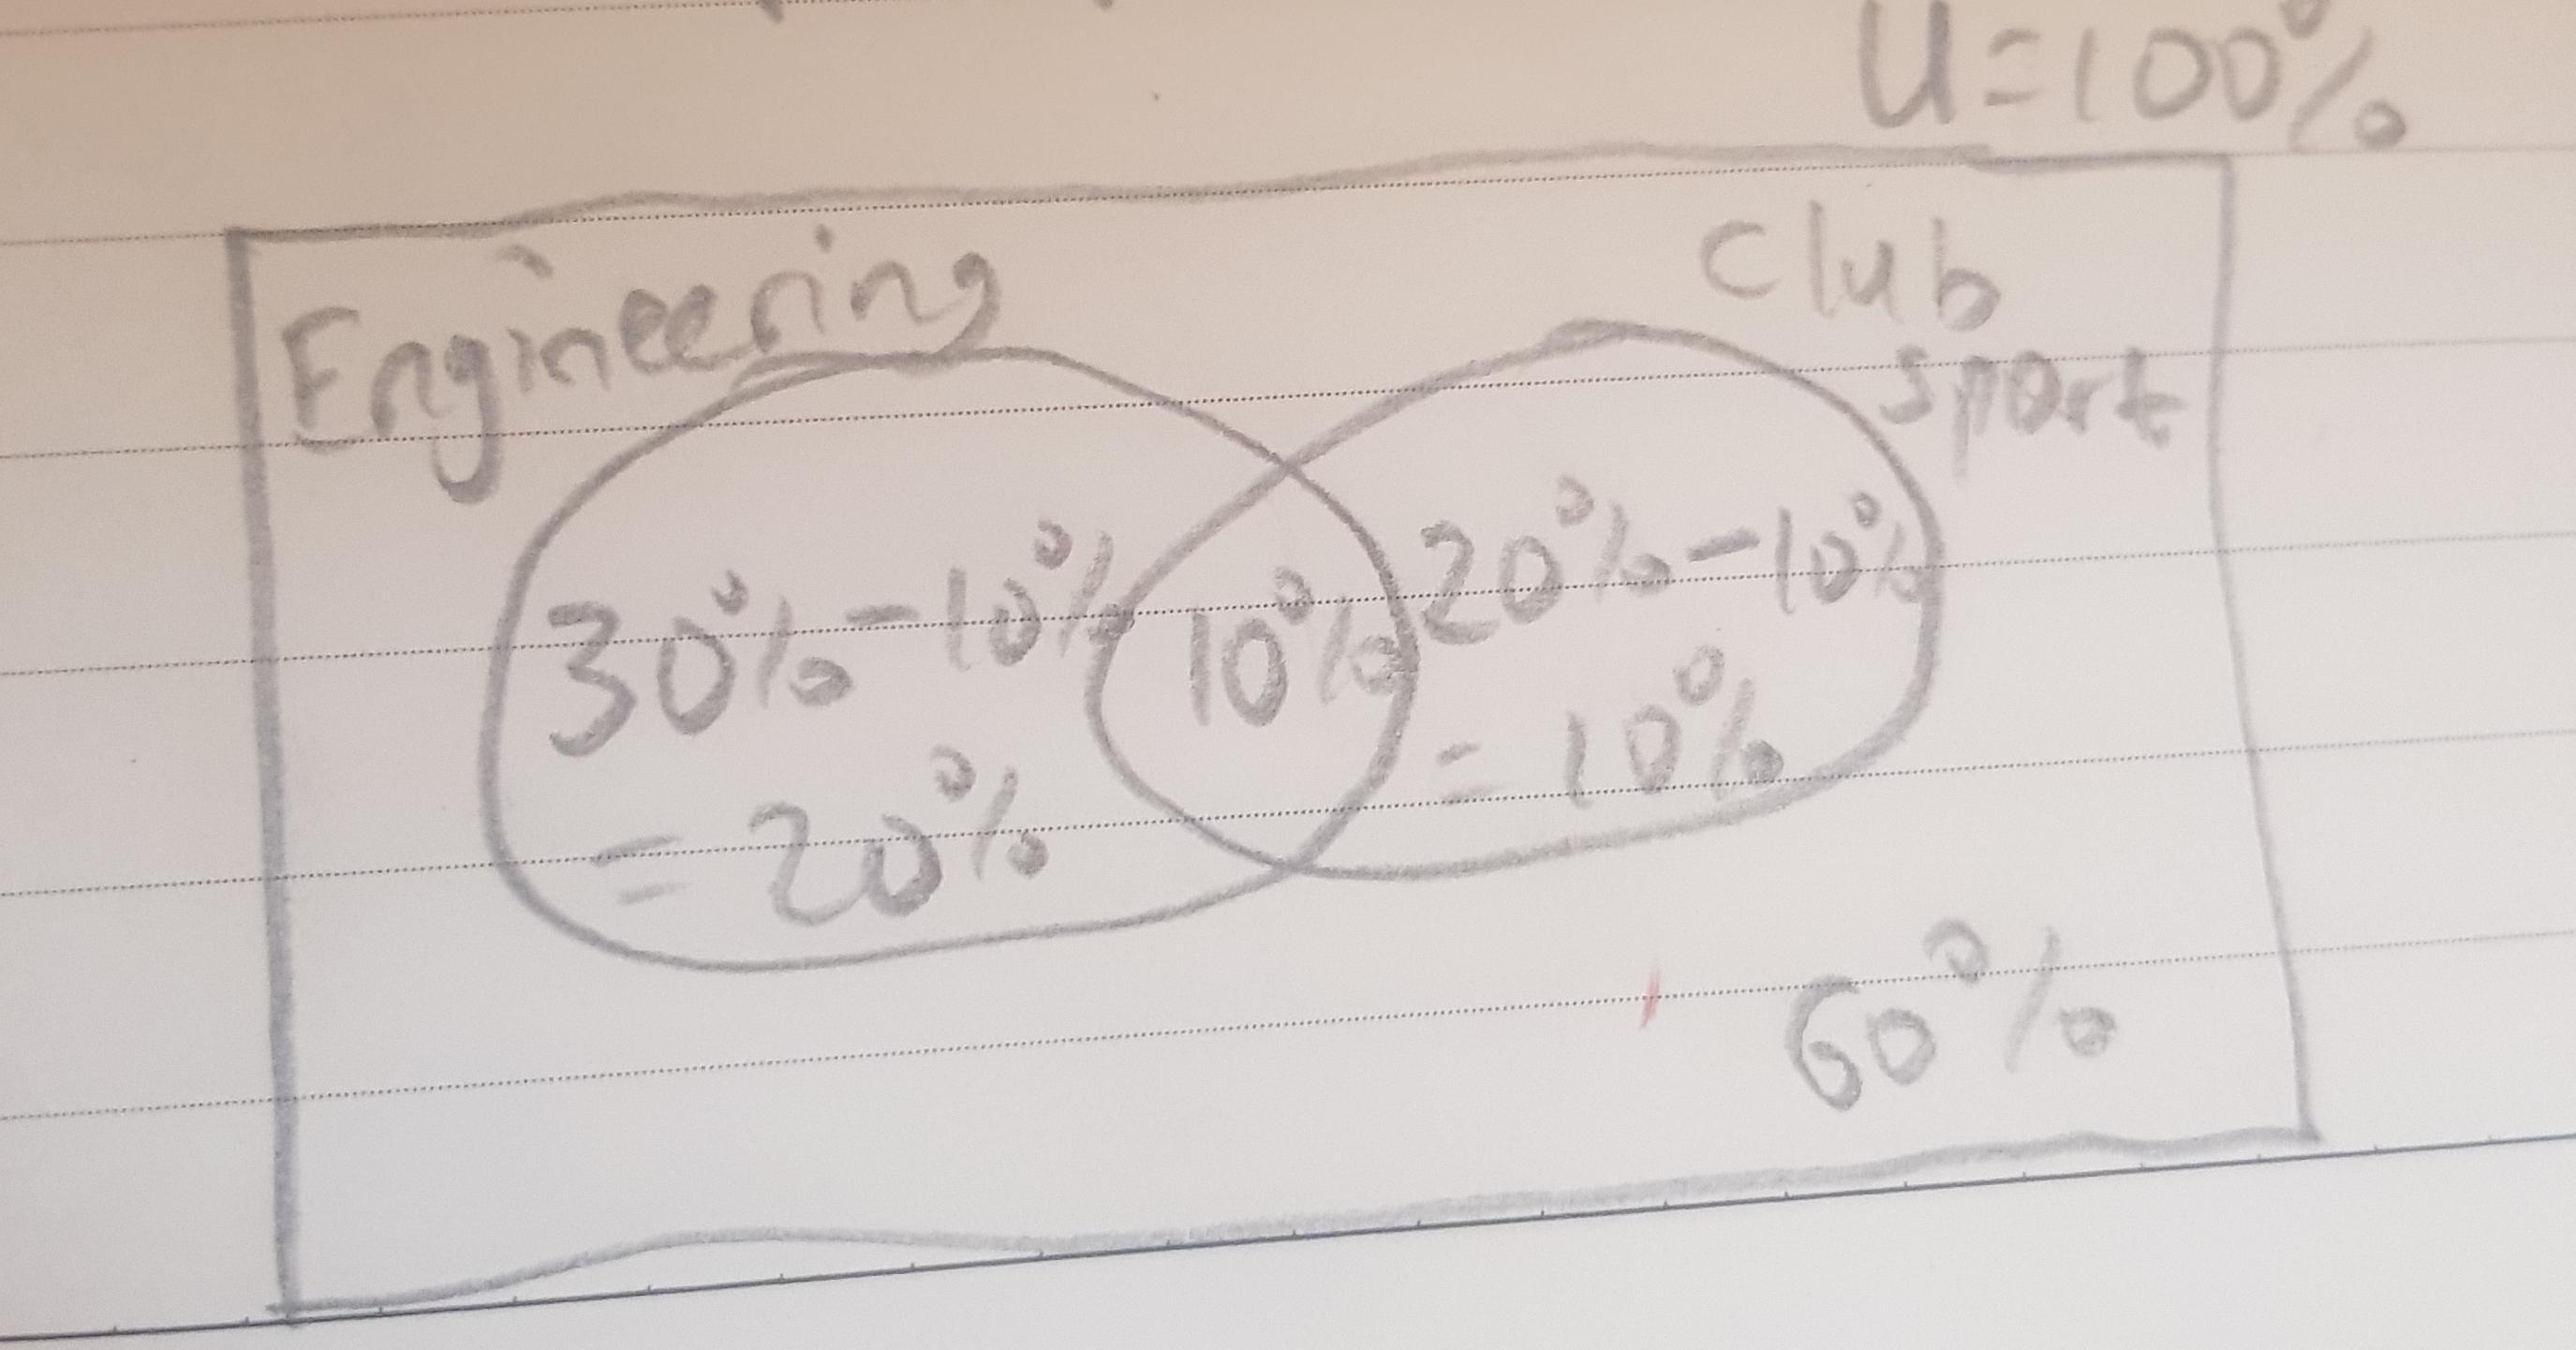 U=100%
Engineering
Club
sport
30%-10%
=20%
10%
20%-10%
=10%
60%